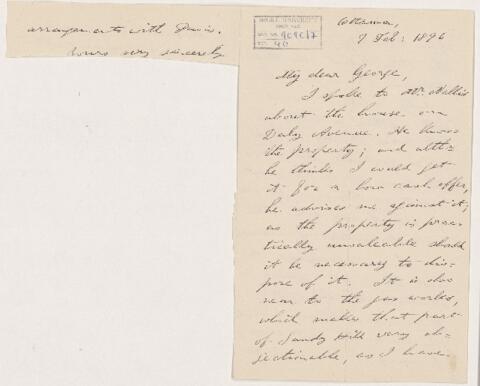 arrangements with Davis.
Yours very sincerely
Ottawa,
7 Feb: 1896
My dear George,
I spoke to Mr. Wallis
about the house on
Daly Avenue. He knows
the property; and altho'
he thinks I would get
it for a low cash offer,
he advises me against it;
as the property is prac-
tically unsaleable should
it be necessary to dis-
pose of it. It is also
near to the gas works,
which makes that part
of Sandy Hill very ob-
jectionable, as I have